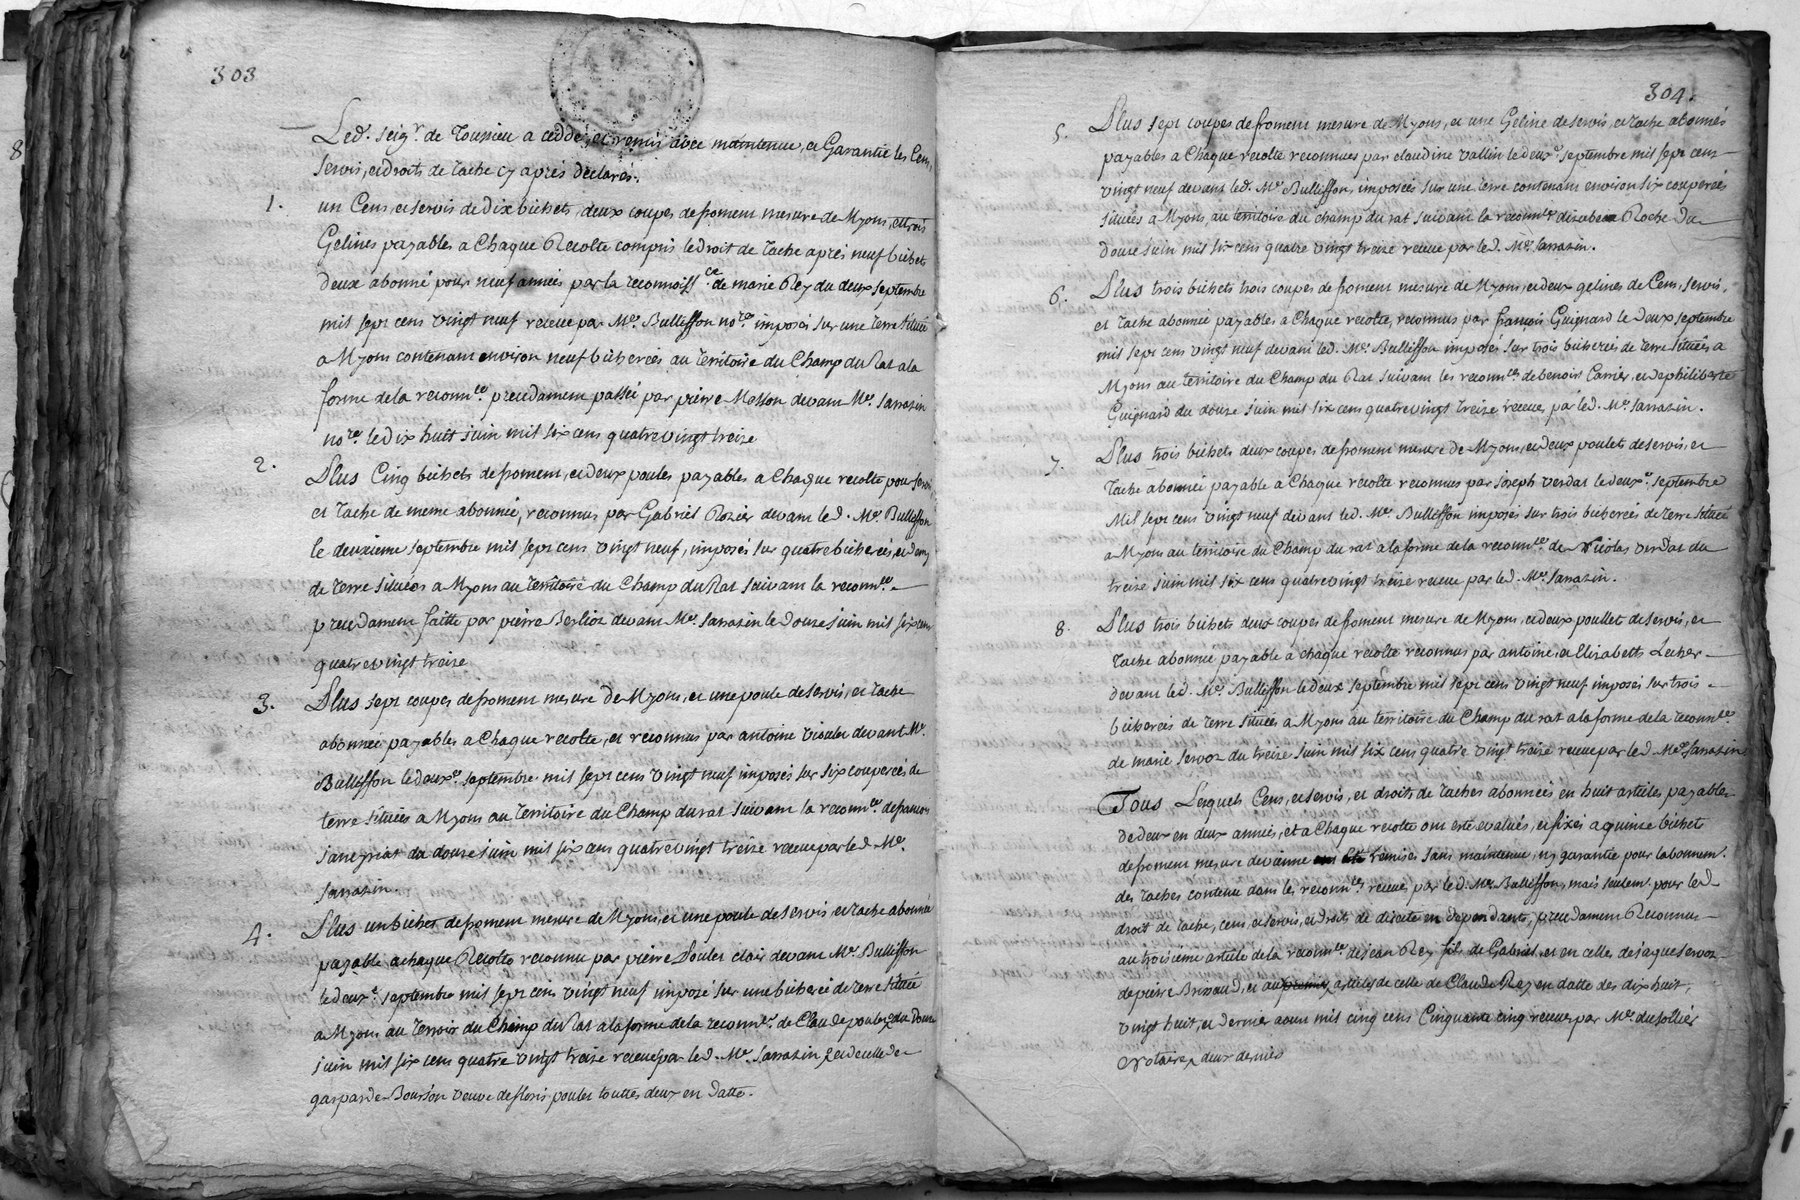 303
Led. seigr de Toussieu a ceddé, et remis avec maintenue, et Garantie les Cens,
servis, et droits de tache cy aprés declarés.
1. un Cens, et servis de dix bichets, deux coupes de froment mesure de Myons, et trois
Gelines payables a Chaque Recolte compris le droit de tache aprés neuf bichets
deux abonné pour neuf années par la reconnoissce de marie Rey du deux septembre
mil sept cens vingt neuf receue par Me. Bulliffon nore. imposés sur une terre située
a Myons contenant environ neuf bicherées au territoire du Champ du Rat a la
forme de la reconnce. precedament passée par pierre Messon devant Me. Sarrazin
nore. le dix huit juin mil six cens quatre vingt treize
2. Plus Cinq bichets de froment, et deux poules payables a Chaque recolte pour servis
et tache de meme abonnée, reconnus par Gabriel Rozier devant led. Me. Bulliffon
le deuxieme septembre mil sept cens vingt neuf, imposés sur quatre bicherées, et demy
de terre situées a Myons au territoire du Champ du Rat suivant la reconnce.
precedament faitte par pierre Berlioz devant Me. Sarrazin le douze juin mil six cens
quatre vingt treize
3. Plus sept coupes de froment mesure de Myons, et une poule de servis, et tache
abonnée payables a Chaque recolte, et reconnus par antoine vioulet devant Me.
Bulliffon le deuxe. septembre mil sept cens vingt neuf imposés sur six couperées de
terre situées a Myons au territoire du Champ du rat suivant la reconnce de francois
du douze juin mil six cens quatre vingt treize receue par led. Me.
Sarrazin.
4. Plus un bichet de froment mesure de Myons, et une poule de servis, et tache abonnée
payable a chaque Recolte reconnu par pierre Poulet clair devant Me. Bulliffon
le deuxe. septembre mil sept cens vingt neuf imposé sur une bicherée de terre située
a Myons au terroir du Champ du Rat a la forme de la reconnce. de Claude poulet du douze
juin mil six cens quatre vingt treize receue par led. Me. Sarrazin, et de celle de
gasparde Bourson veuve de floris poulet touttes deux en datte.
304.
5. Plus sept coupes de froment mesure de Myons, et une Geline de servis, et tache abonnés
payables a Chaque recolte reconnues par claudine vallin le deuxe. septembre mil sept cens
vingt neuf devant led. Me. Bulliffon, imposées sur une terre contenant environ six couperées
situées a Myons, au territoire du champ du rat suivant la reconnce d'izabeau Roche du
douze juin mil six cens quatre vingt treize receue par led. Me. Sarrazin.
6. Plus trois bichets trois coupes de froment mesure de Myons, et deux gelines de Cens, servis,
et tache abonnée payables a Chaque recolte, reconnus par francois Guignard le deux septembre
mil sept cens vingt neuf devant led. Me. Bulliffon imposés sur trois bicherées de terre situées a
Myons au territoire du Champ du Rat suivant les reconnces de benoist Carrier, et de philiberte
Guignard du douze juin mil six cens quatre vingt treize receues par led. Me. Sarrazin.
7. Plus trois bichets deux coupes de froment mesure de Myons, et deux poulets de servis, et
tache abonnée payable a Chaque recolte reconnus par joseph verdat le deuxe. septembre
Mil sept cens vingt neuf devant led. Me. Bulliffon imposés sur trois bicherées de terre située
a Myons au territoire du Champ du rat a la forme de la reconnce. de Nicolas verdat du
treize juin mil six cens quatre vingt treize receue par led. Me. Sarrazin.
8. Plus trois bichets deux coupes de froment mesure de Myons, et deux poullet de servis, et
tache abonnée payable a chaque recolte reconnus par antoine, et Elizabeth Lecher
devant led. Me. Bulliffon le deux septembre mil sept cens vingt neuf imposés sur trois
bicherées de terre situées a Myons au territoire du Champ du rat a la forme de la reconnce.
de marie servoz du treize juin mil six cens quatre vingt treize receue par led. Me. Sarrazin
Tous Lesquels Cens, et servis, et droits de taches abonnées en huit articles payables
de deux en deux années, et a Chaque recolte ont esté evalués, et fixés a quinze bichets
de froment mesure de vienne remises sans maintenue, ny garantie pour labonnemt.
des taches contenue dans les reconnces. receues par led. Me. Bulliffon, mais seulemt. pour led
droit de tache, cens, et servis, et droits de directe en dependants, precedament Reconnus
au troisieme article de la reconnce. de jean Rey fils de Gabriel, et en celles de jaque servoz
de pierre Brissaud, et au articles de celle de Claude Rey en datte des dix huit,
vingt huit, et dernier aoust mil cinq cens Cinquante cinq receues par Me. du sollier
Notaire, deux dernies